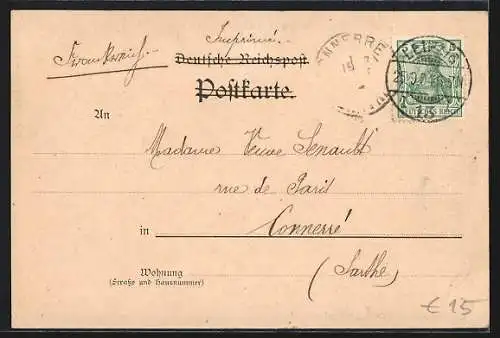 Imprimé.
Frankreich.
Deutsche Reichspost
Postkarte.
CONNERRÉ
LEIPZIG
An
Madame Veuve Senault
rue de Paris
in Connerré
Wohnung
(Straße und Hausnummer)
(Sarthe)
€ 15